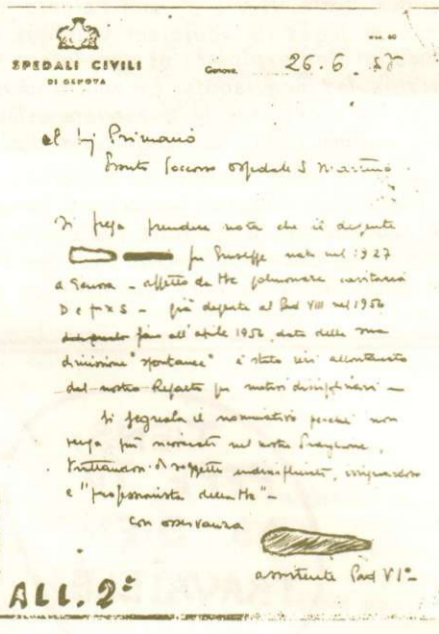 SPEDALI CIVILI
DI GENOVA
Genova 26.6.57
Al Sig Primario
Pronto Soccorso Ospedale S Martino
Si prega prendere nota che il degente
fu Giuseppe nato nel 1927
a Genova - affetto da tbc polmonare cavitaria
D e S - già degente al Pad VIII nel 1956
fino all'aprile 1956, data della sua
dimissione "spontanea" è stato ieri allontanato
dal nostro Reparto per motivi disciplinari -
Si segnala il nominativo perché non
venga più ricoverato nel nostro Padiglione,
trattandosi di soggetto indisciplinato,
e "professionista della tbc" -
Con osservanza
assistente Pad VI°
ALL. 2°